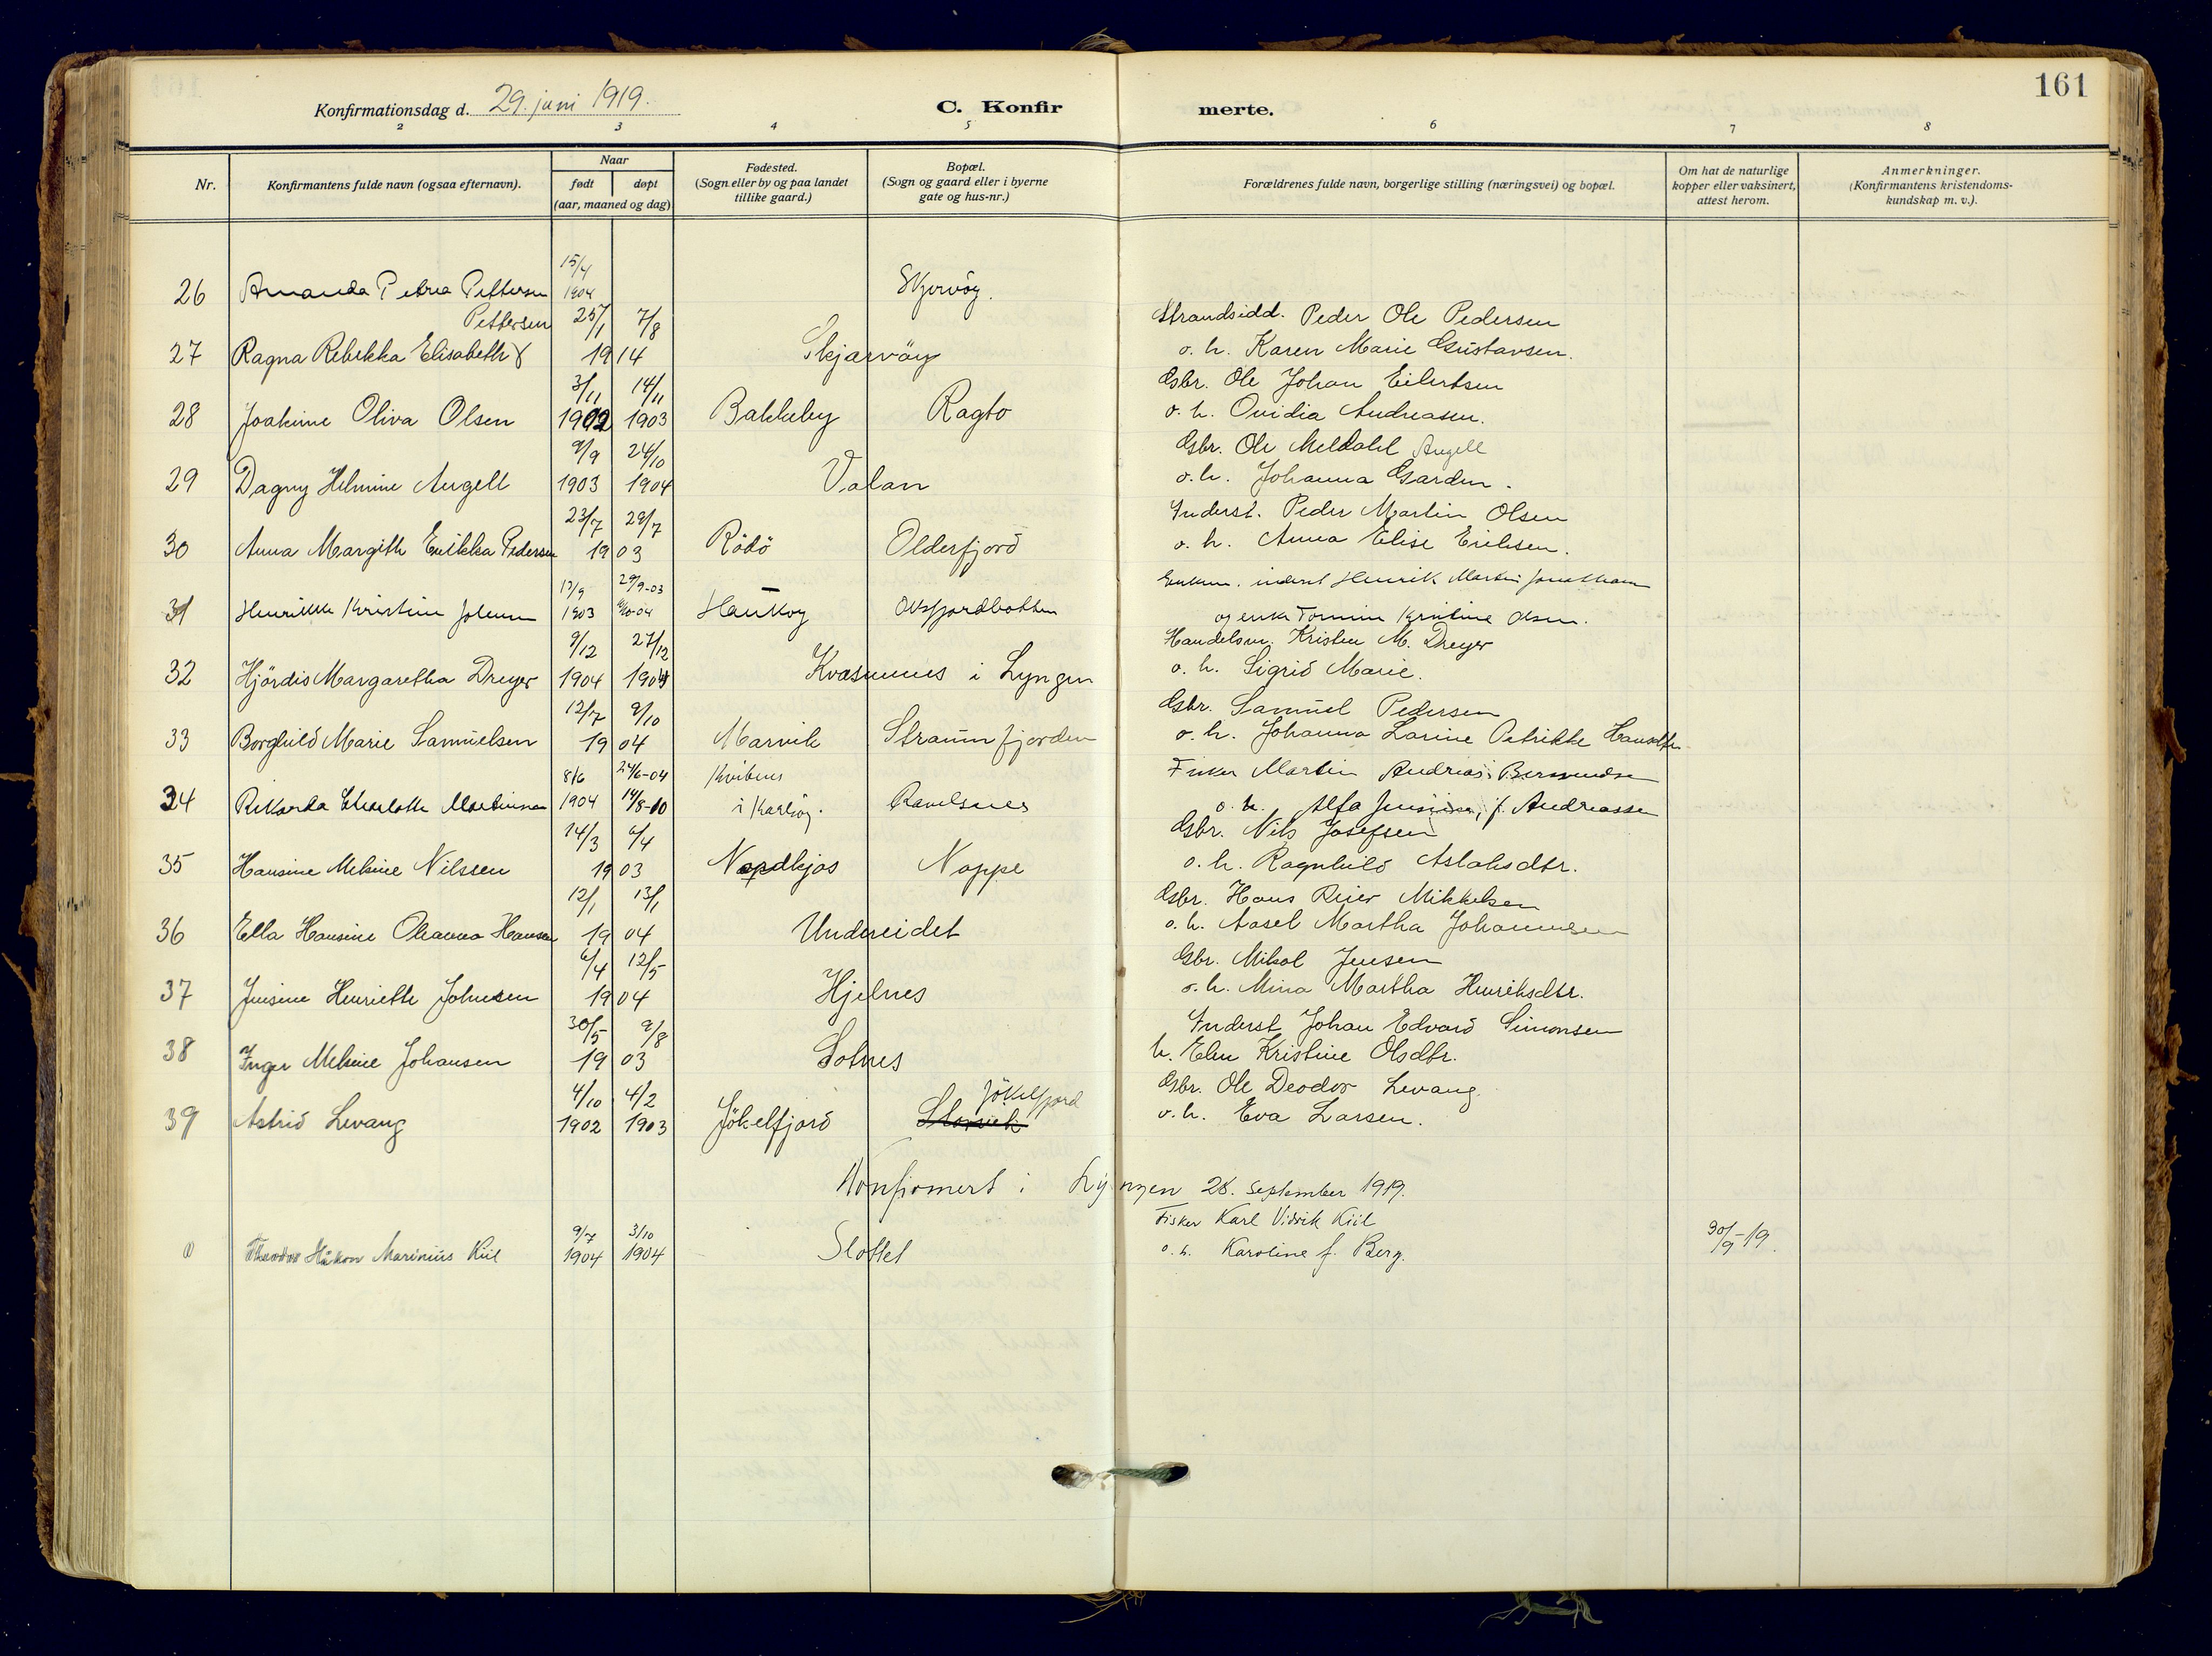 161
Konfirmationsdag d. 29. juni 1919. C. Konfirmerte.
2 3 4 5 6 7 8
Nr. Konfirmantens fulde navn (ogsaa efternavn). Naar født døpt (aar, maaned og dag) Fødested. (Sogn eller by og paa landet tillike gaard.) Bopæl. (Sogn og gaard eller i byerne gate og hus-nr.) Forældrenes fulde navn, borgerlige stilling (næringsvei) og bopæl. Om hat de naturlige kopper eller vaksinert, attest herom. Anmerkninger. (Konfirmantens kristendoms-kundskap m. v.).
15/4
26 Amanda Petrea Pettersen 1904 Skjervöy.
Pettersen 25/1 7/8 Strandsidd. Peder Ole Pedersen
27 Ragna Rebekka Elisabeth 1914 Skjærvöy o. h. Karen Marie Gustavsen.
3/11 14/11 Gbr. Ole Johan Eilertsen
28 Joakime Oliva Olsen 1902 1903 Bakkeby Ragto o. h. Ovidia Andreasen.
9/9 24/10 Gbr. Ole Meldahl Angell
29 Dagny Helmine Angell 1903 1904 Valan o. h. Johanna Garden.
23/7 28/7 Inderst. Peder Martin Olsen
30 Anna Margith Erikka Pedersen 1903 Rödö Olderfjord o. h. Anna Elise Eriksen.
17/9 29/9-03 inderst Henrik Martin
31 Henrikke Kristine 1903 Haukøy Oksfjordbotten og enke Kristine Olsen.
9/12 27/12 Handelsm. Kristen M. Dreyer
32 Hjördis Margaretha Dreyer 1904 1904 Kvasnes i Lyngen o. h. Sigrid Marie.
12/7 9/10 Gbr. Samuel Pedersen
33 Borghild Marie Samuelsen 1904 Marvik Straumfjorden o. h. Johanna Larine Petrikke Hansdtr.
8/6 24/6-04 Fisker Martin Andreas
34 Rikarda Charlotte 1904 14/8-10 i Karlsöy. Ravelsnes o. h. Alfa f. Andreassen
14/3 6/4 Gbr. Nils Josefsen
35 Hansine Meline Nilssen 1903 Nordkjos Noppe o. h. Ragnhild Aslaksdtr.
12/1 13/1 Gbr. Hans Reier Mikkelsen
36 Ella Hansine Oleanna Hansen 1904 Undereidet o. h. Aasel Martha Johannesen
6/4 12/5 Gbr. Mikal Jensen
37 Jensine Henriette Johnsen 1904 Hjelnes o. h. Mina Martha Henriksdtr.
30/5 9/8 Inderst Johan Edvard Simonsen
38 Inger Meline Johansen 1903 Solnes h. Elen Kristine Olsdtr.
4/10 4/2 Jökelfjord Gbr. Ole Deodor Levang.
39 Astrid Levang 1902 1903 Jökelfjord Storvik o. h. Eva Larsen.
Konfirmert i Lyngen 28. september 1919.
9/7 3/10 Fisker Karl Vidrik Kiil 30/9-19.
Håkon Marinius Kiil 1904 1904 Slottet o. h. Karoline f. Berg.